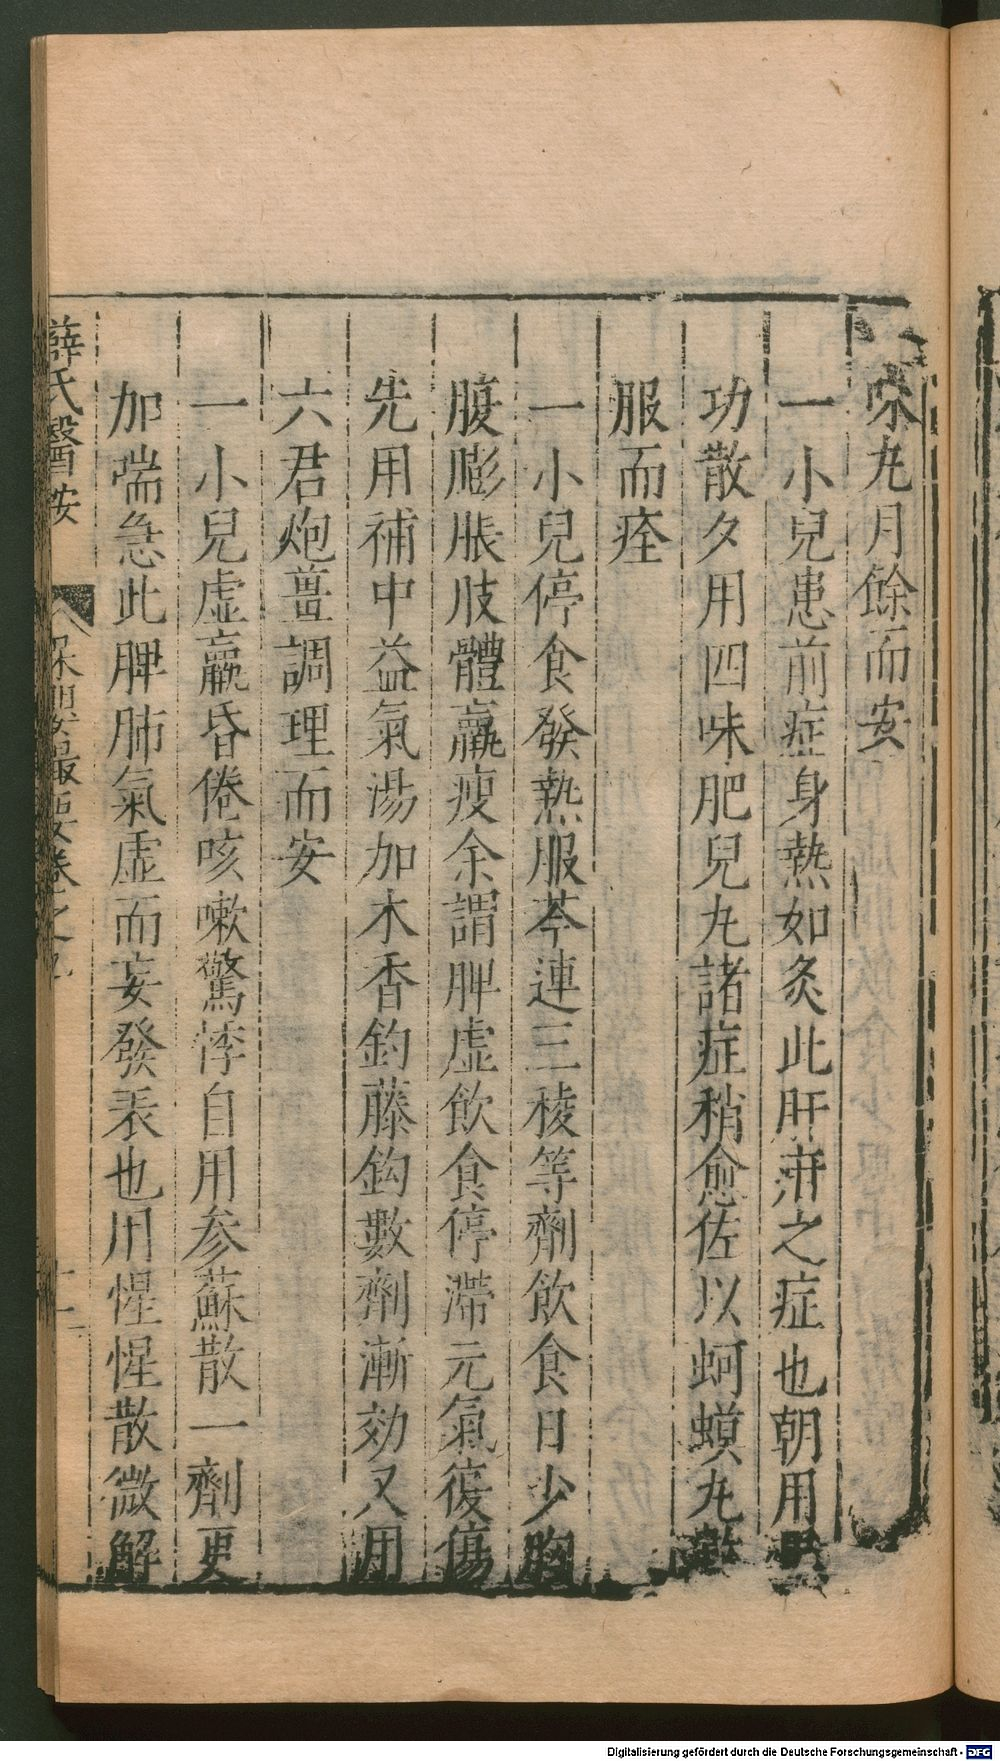 味丸月餘而安
一小兒患前症身熱如炙此肝疳之症也朝用異
功散夕用四味肥兒丸諸症稍愈佐以蚵蟆丸數
服而痊
一小兒停食發熱服芩連三稜等劑飲食日少胸
腹膨脹肢體羸瘦余謂脾虛飲食停滯元氣復傷
先用補中益氣湯加木香鈎藤鈎數劑漸効又用
六君炮薑調理而安
一小兒虛羸昏倦咳嗽驚悸自用参蘇散一劑更
加喘急此脾肺氣虛而妄發表也用惺惺散微解
薛氏醫按
保嬰撮要卷之九
十一
Digitalisierung gefördert durch die Deutsche Forschungsgemeinschaft - DFG